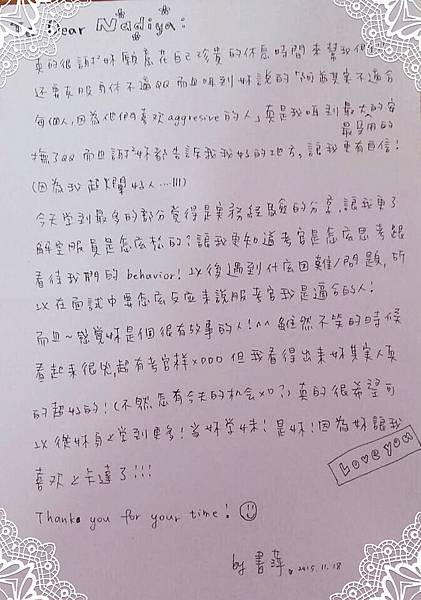 Dear Nadiya:
真的很謝謝妳願意花自己珍貴的休息時間來幫我們
還要克服身體不適QQ 而且聽到妳說的「阿酋其實不適合
每個人,因為他們喜歡aggresive的人」真是我聽到最大的安
最受用的
撫了QQ 而且謝謝妳都告訴我我好的地方,讓我更有自信!
(因為我超爛好人....lll)
今天學到最多的部分覺得是實務經驗的分享,讓我更了
解空服員是怎麼樣的?讓我更知道考官是怎麼思考跟
看待我們的behavior!以後遇到什麼困難/問題,所
以在面試中要怎麼反應來說服考官我是適合的人!
而且~感覺妳是個很有故事的人!^^ 雖然不笑的時候
看起來很兇,超有考官樣XDDD 但我看得出來妳其實人真
的超好的!(不然怎有今天的机会XD?)真的很希望可
以從妳身上學到更多!當妳學妹!是妳!因為妳讓我
喜欢上卡達了!!!
Love you
Thank you for your time!
by 書萍 2015.11.18